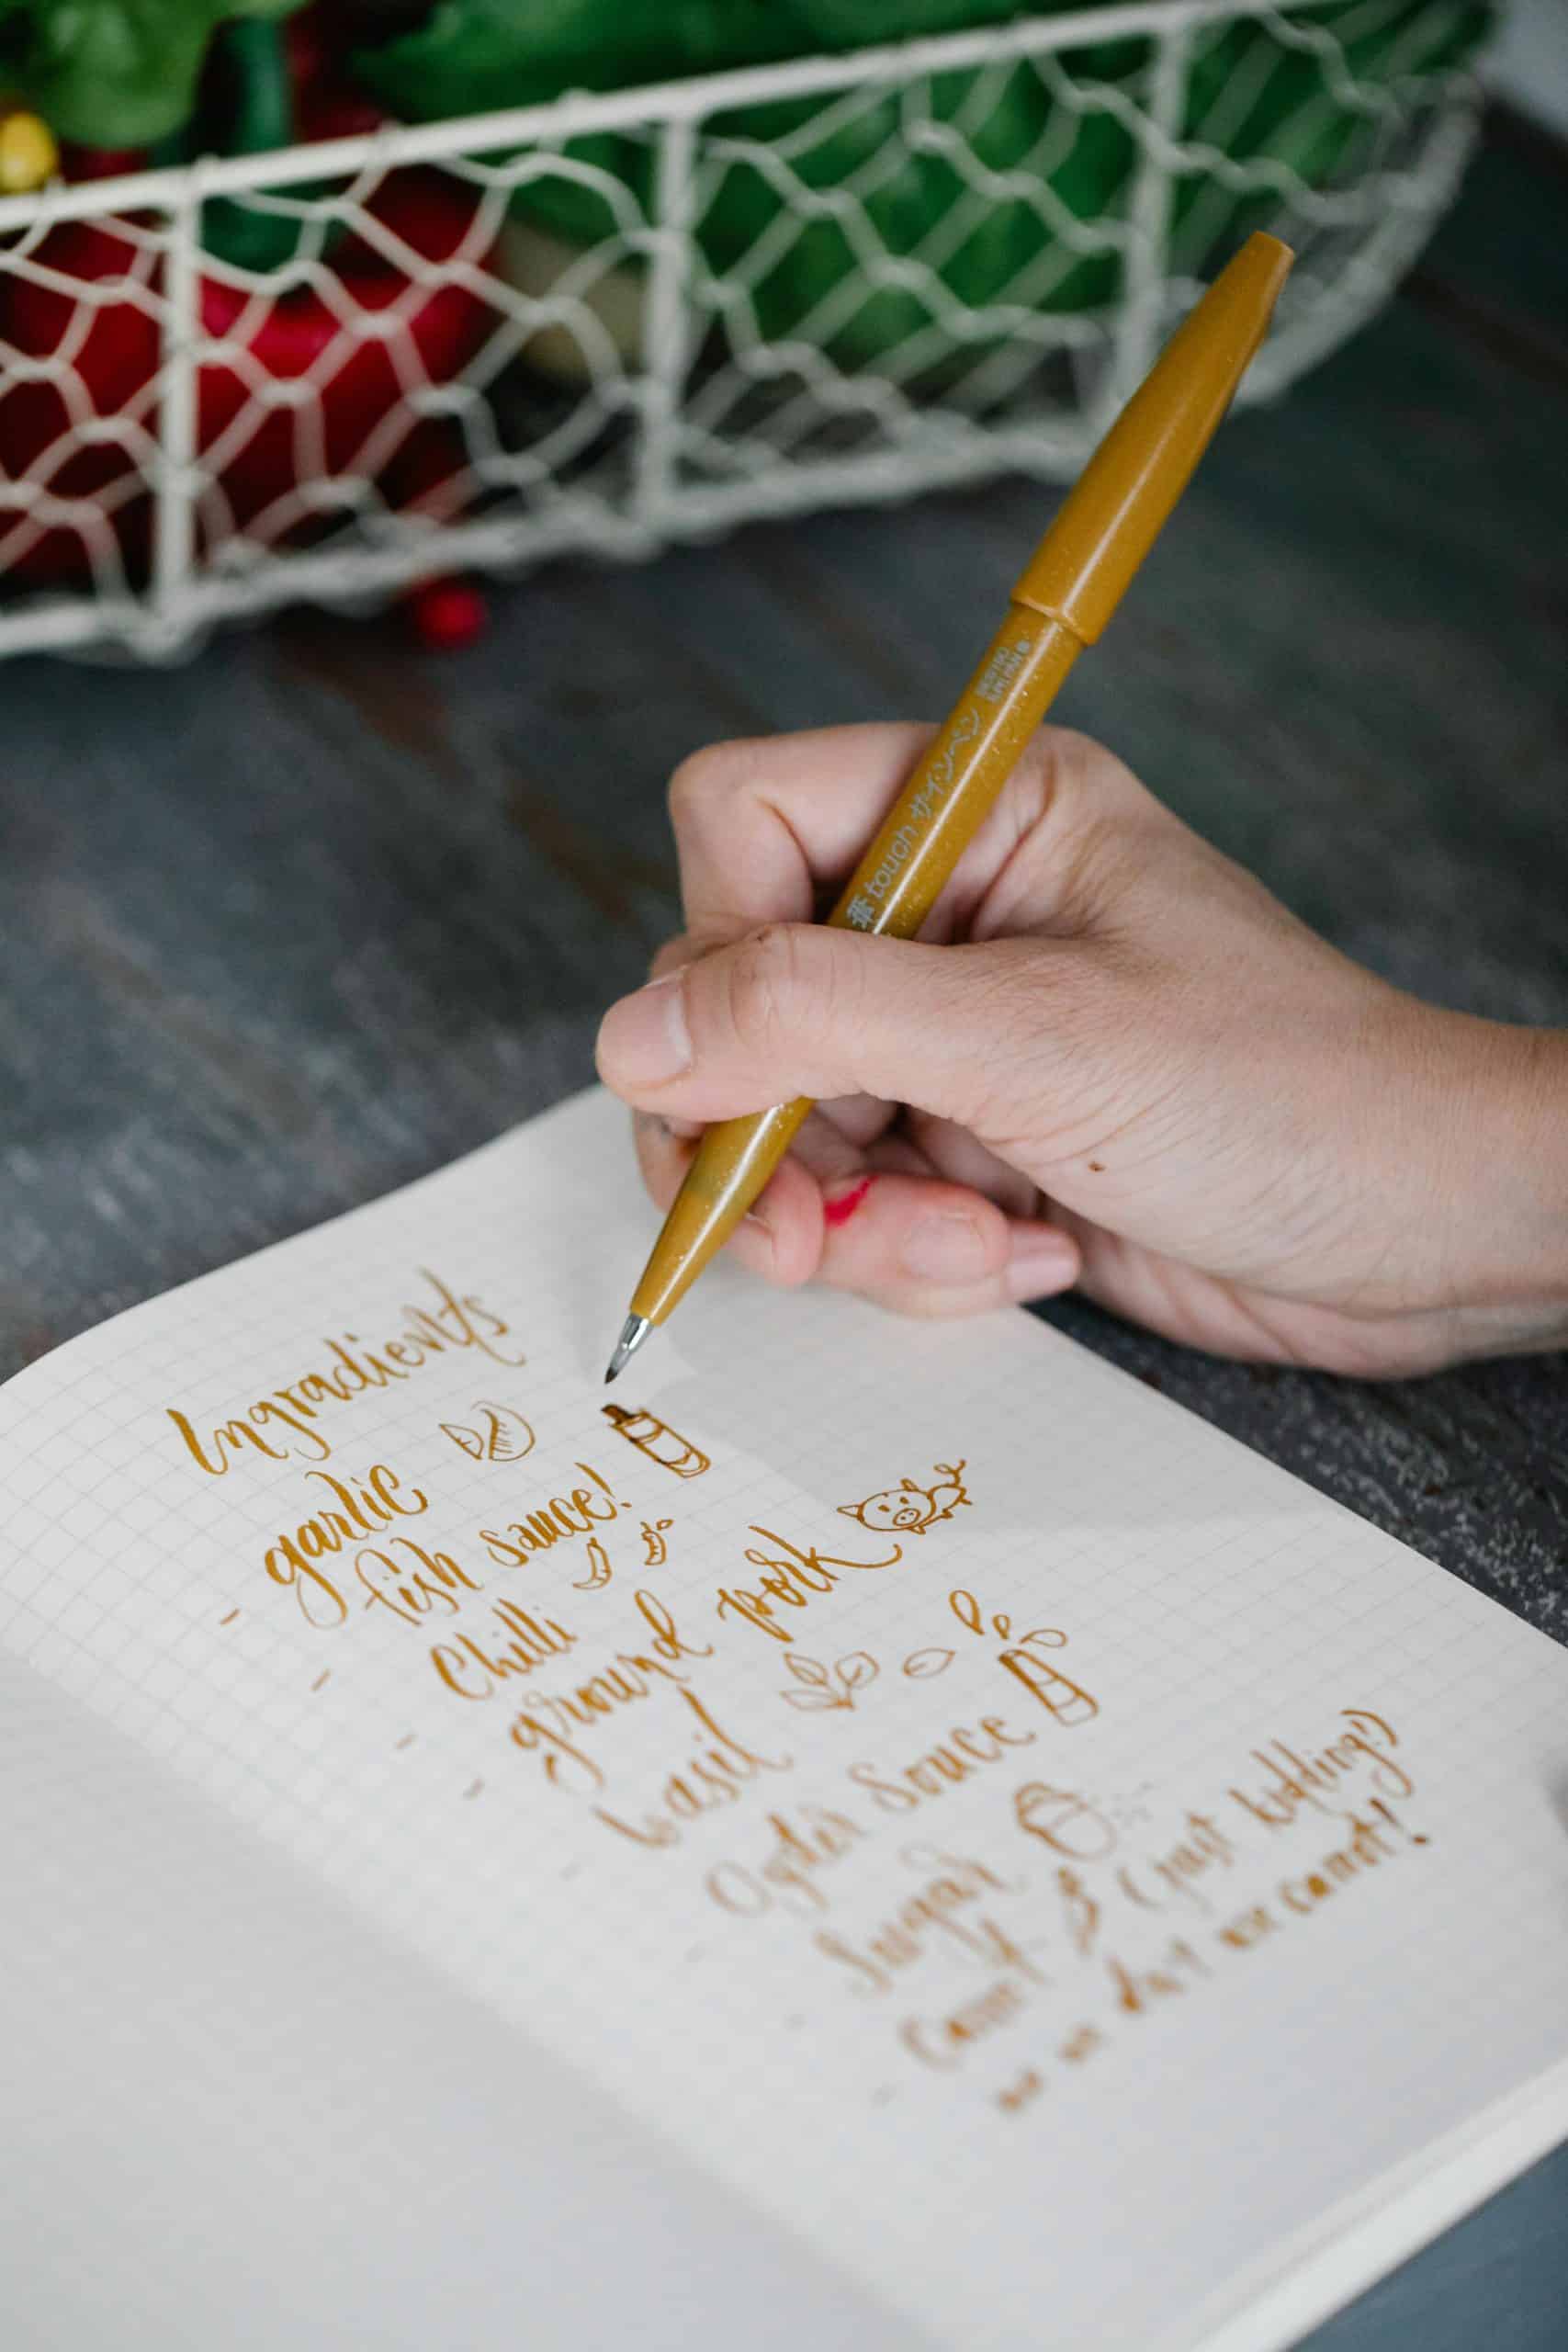 touch サインペン
Ingradients
- garlic
- fish sauce!
- Chilli
- ground pork
- basil
- Oyster Sauce
- Sugar
- Carrot (just kidding!)
we don't use carrot!